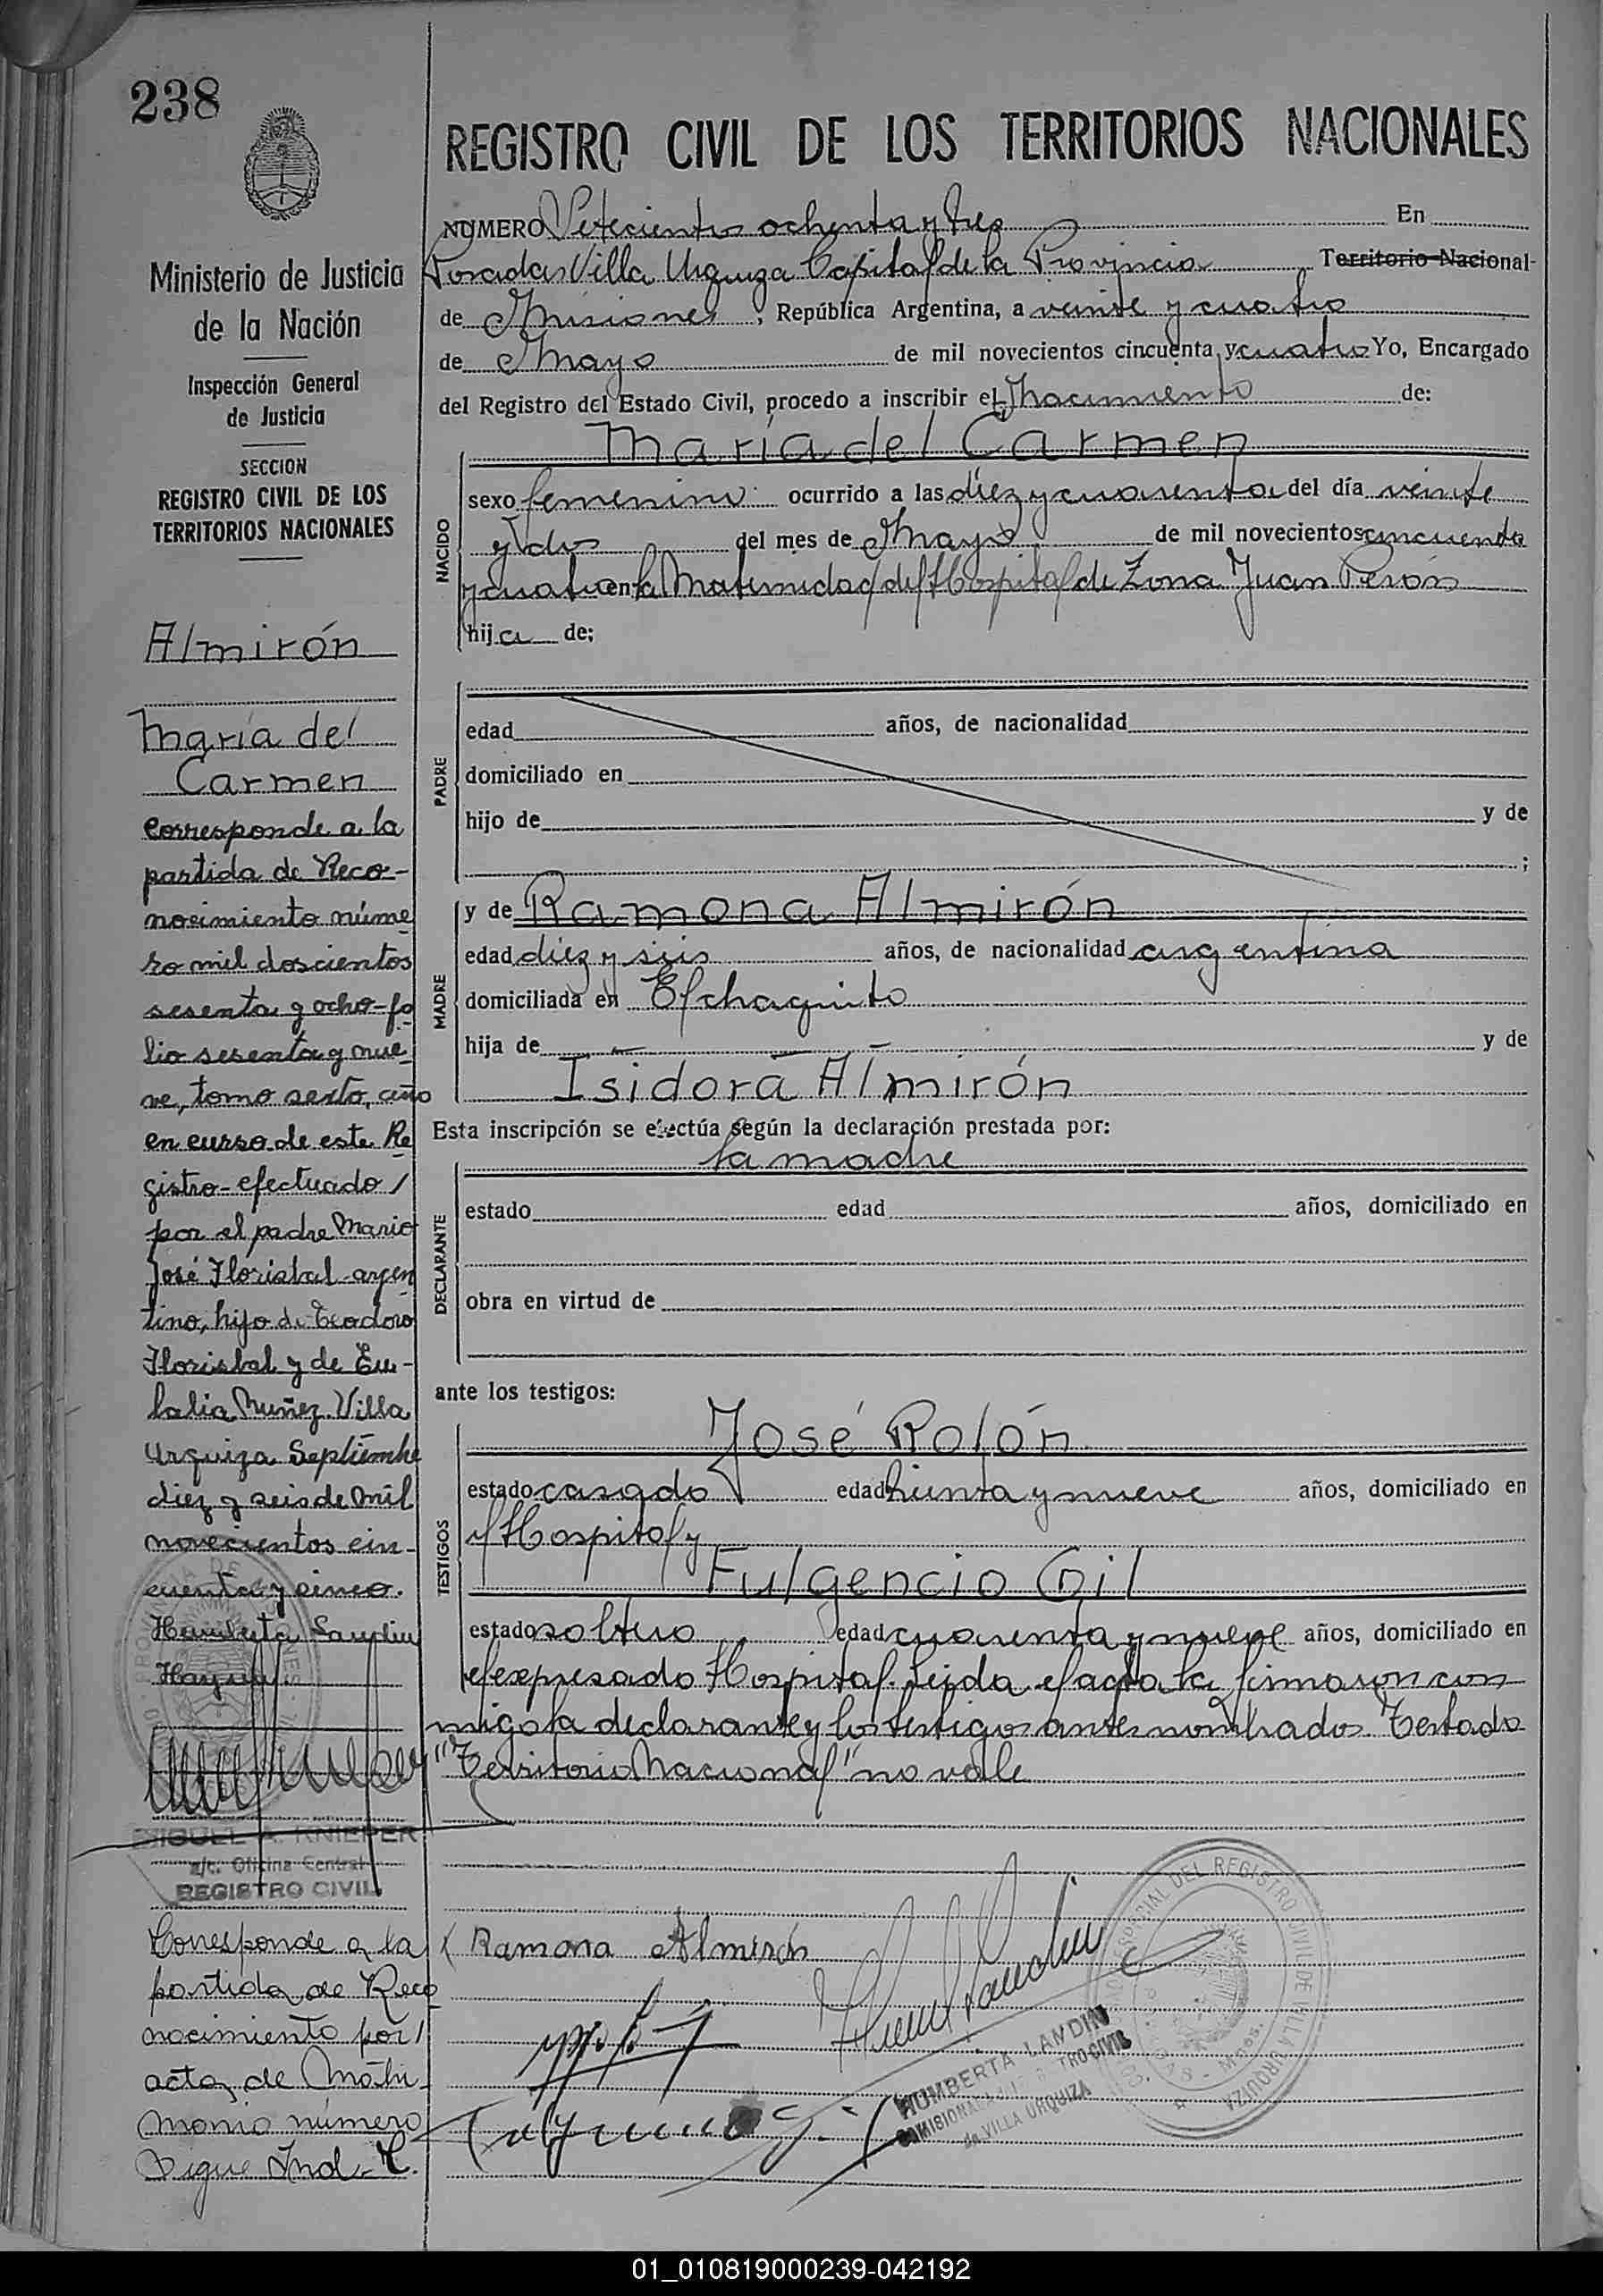 238
Ministerio de Justicia
de la Nación
Inspección General
de Justicia
SECCION
REGISTRO CIVIL DE LOS
TERRITORIOS NACIONALES
Almirón
María del
Carmen
Corresponde a la
partida de Reco-
nocimiento núme
ro mil doscientos
sesenta y ocho-fo
lio sesenta y nue
ve, tomo sexto, año
en curso de este Re
gistro-efectuado/
por el padre Mario
José Floristal-argen
tino, hijo de Teodoro
Floristal y de Eu-
lalia Nuñez. Villa
Urquiza Septiembre
diez y seis de mil
novecientos cin-
cuenta y cinco.
Humberta Landin
MIGUEL A. KNIEPER
a/c. Oficina Central
REGISTRO CIVIL
Corresponde a la
partida de Reco
nocimiento por/
acta de Matri
monio número
Sigue Ind-
REGISTRO CIVIL DE LOS TERRITORIOS NACIONALES
NUMERO Setecientos ochenta y tres En
Posadas Villa Urquiza Capital de la Provincia Territorio Nacional
de Misiones, República Argentina, a veinte y cuatro
de Mayo de mil novecientos cincuenta y cuatro Yo, Encargado
del Registro del Estado Civil, procedo a inscribir el Nacimiento de:
María del Carmen
NACIDO
sexo femenino ocurrido a las diez y cuarenta del día veinte
y dos del mes de Mayo de mil novecientos cincuenta
y cuatro en la Maternidad del Hospital de Zona Juan Perón
hija de:
PADRE
edad años, de nacionalidad
domiciliado en
hijo de y de
;
MADRE
y de Ramona Almirón
edad diez y seis años, de nacionalidad argentina
domiciliada en El chaquito
hija de y de
Isidora Almirón
Esta inscripción se efectúa según la declaración prestada por:
la madre
DECLARANTE
estado edad años, domiciliado en
obra en virtud de
ante los testigos:
TESTIGOS
José Rolón
estado casado edad treinta y nueve años, domiciliado en
el Hospital y
Fulgencio Gil
estado soltero edad cuarenta y nueve años, domiciliado en
el expresado Hospital. Leida el acta la firmaron con
migo la declarante y los testigos antes nombrados. Testado
"Territorio Nacional" no vale
Ramona Almirón
HUMBERTA LANDIN
de VILLA URQUIZA
01_010819000239-042192